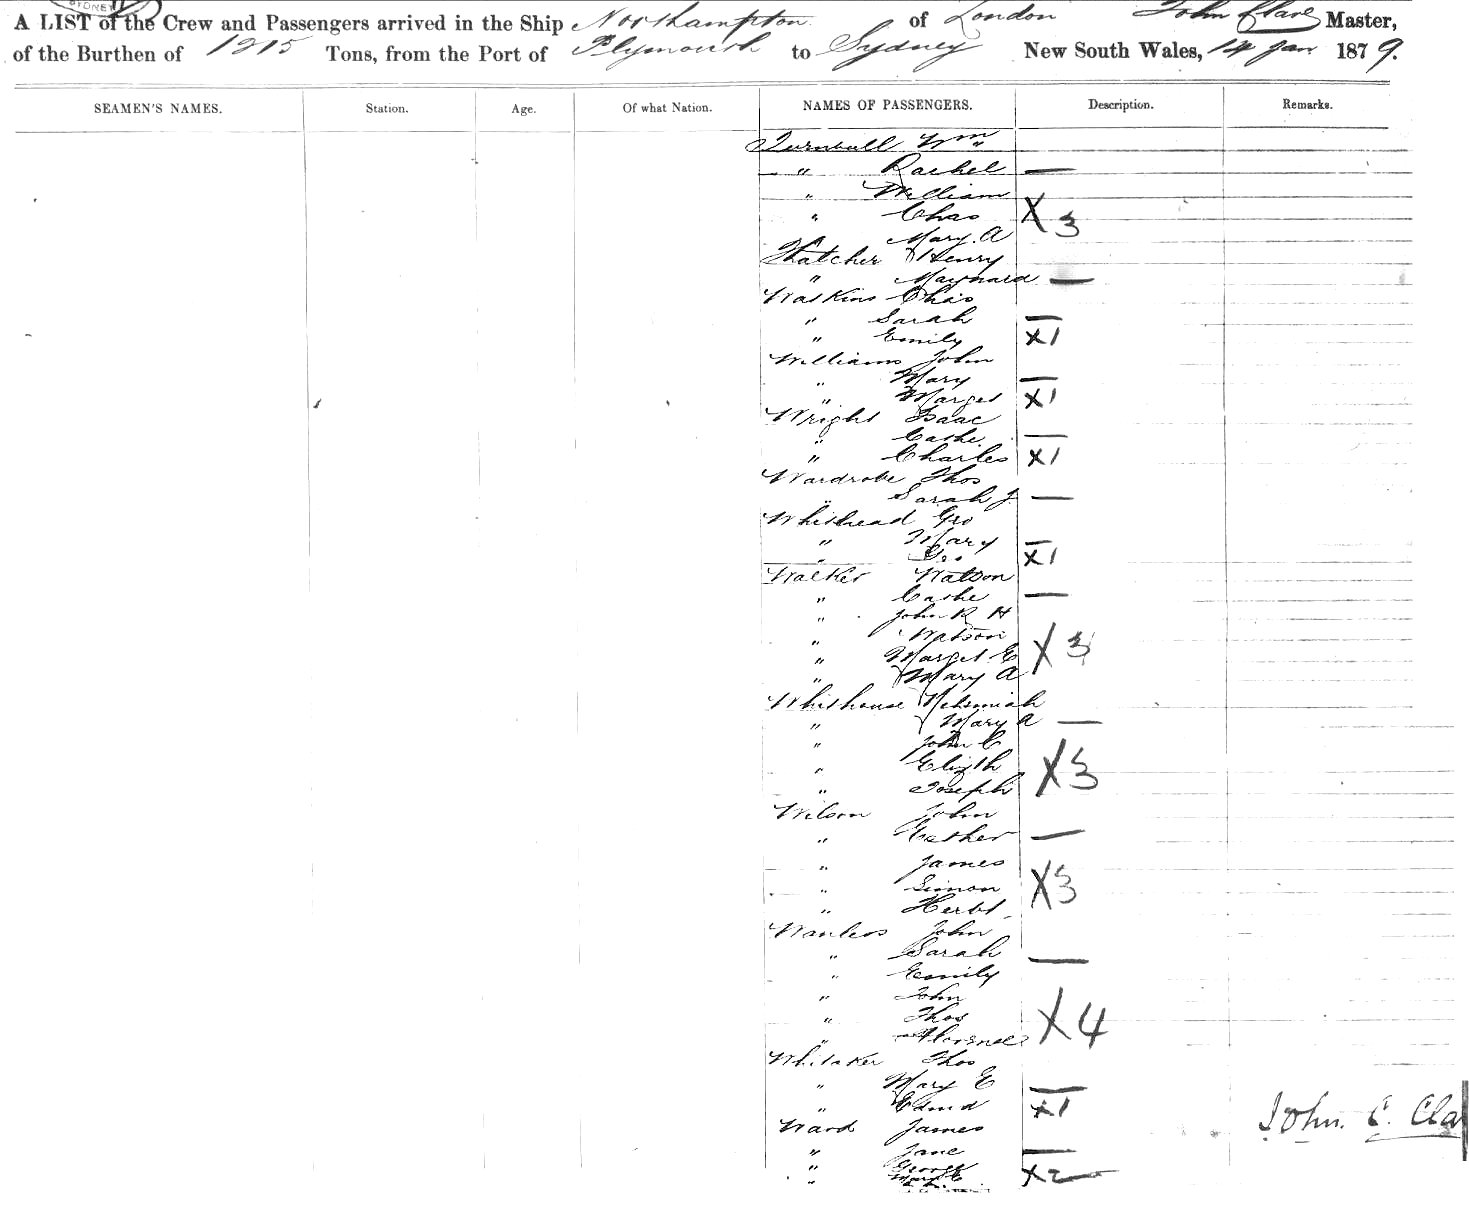 SYDNEY
A LIST of the Crew and Passengers arrived in the Ship Northampton of London John Clare Master,
of the Burthen of 1215 Tons, from the Port of Plymouth to Sydney New South Wales, 14 Jan 1879.
SEAMEN'S NAMES. Station. Age. Of what Nation. NAMES OF PASSENGERS. Description. Remarks.
Turnbull Wm
" Rachel —
" William
" Chas X3
Mary. A
Thatcher Henry
" Maynard —
Watkins Chas
" Sarah —
" Emily X1
Williams John
" Mary —
" Marget X1
Wright Isaac
" Cathe —
" Charles X1
Wardrobe Thos
" Sarah J. —
Whithead Geo
" Mary —
" Geo. X1
Walker Watson
" Cathe —
" John R H
" Watson X3
" Marget E
" Mary A
Whithouse Nehmiah
" Mary A —
" John C
" Elizth X3
" Joseph
Wilson John
" Esther —
" James
" Simon X3
" Herbt
Wanless John
" Sarah —
" Emily
" John
" Thos X4
" Florence
Whitaker Thos
" Mary E —
" Edmd X1
Ward James
" Jane —
" George X2
" Mary E
John. C. Cla